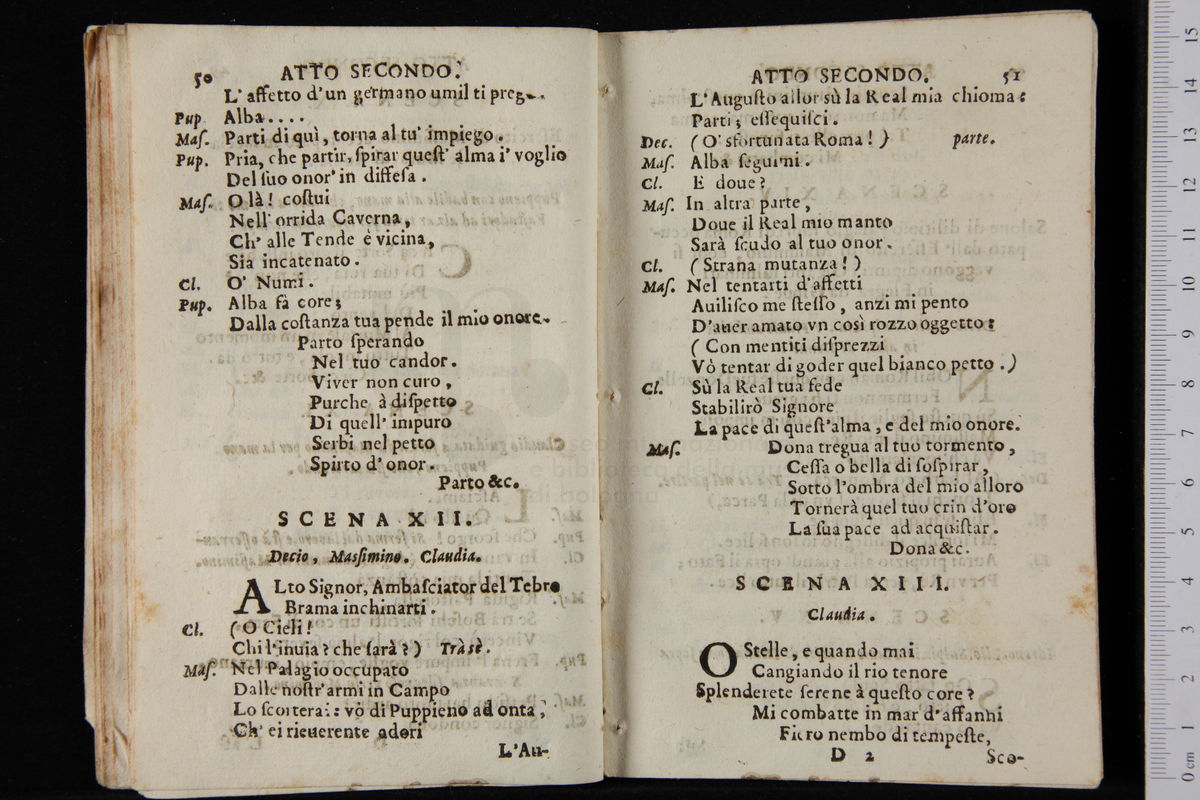 50 ATTO SECONDO.
L' affetto d'un germano umil ti
Pup. Alba....
Maſ. Parti di quì, torna al tu' impiego.
Pup. Pria, che partir, ſpirar queſt' alma i' voglio
Del ſuo onor' in diffeſa.
Maſ. O là! coſtui
Nell' orrida Caverna,
Ch' alle Tende è vicina,
Sia incatenato.
Cl. O' Numi.
Pup. Alba fà core;
Dalla coſtanza tua pende il mio onore.
Parto ſperando
Nel tuo candor.
Viver non curo,
Purche à diſpetto
Di quell' impuro
Serbi nel petto
Spirto d' onor.
Parto &c.
SCENA XII.
Decio, Maſſimino. Claudia.
ALto Signor, Ambaſciator del Tebro
Brama inchinarti.
Cl. (O Cieli!
Chi l'inuia? che ſarà?) Trà sè.
Maſ. Nel Palagio occupato
Dalle noſtr'armi in Campo
Lo ſcorterai: vò di Puppieno ad onta,
Ch' ei rieuerente adori
L'Au-
ATTO SECONDO. 51
L'Auguſto allor sù la Real mia chioma:
Parti; eſſequiſci.
Dec. (O' sfortunata Roma!) parte.
Maſ. Alba ſeguimi.
Cl. E doue?
Maſ. In altra parte,
Doue il Real mio manto
Sarà ſcudo al tuo onor.
Cl. (Strana mutanza!)
Maſ. Nel tentarti d'affetti
Auiliſco me ſteſſo, anzi mi pento
D'auer amato vn così rozzo oggetto:
(Con mentiti diſprezzi
Vò tentar di goder quel bianco petto.)
Cl. Sù la Real tua fede
Stabilirò Signore
La pace di queſt'alma, e del mio onore.
Maſ. Dona tregua al tuo tormento,
Ceſſa o bella di ſoſpirar,
Sotto l'ombra del mio alloro
Tornerà quel tuo crin d'oro
La ſua pace ad acquiſtar.
Dona &c.
SCENA XIII.
Claudia.
O Stelle, e quando mai
Cangiando il rio tenore
Splenderete ſerene à queſto core?
Mi combatte in mar d'affanni
Fiero nembo di tempeſte,
D 2 Sco-